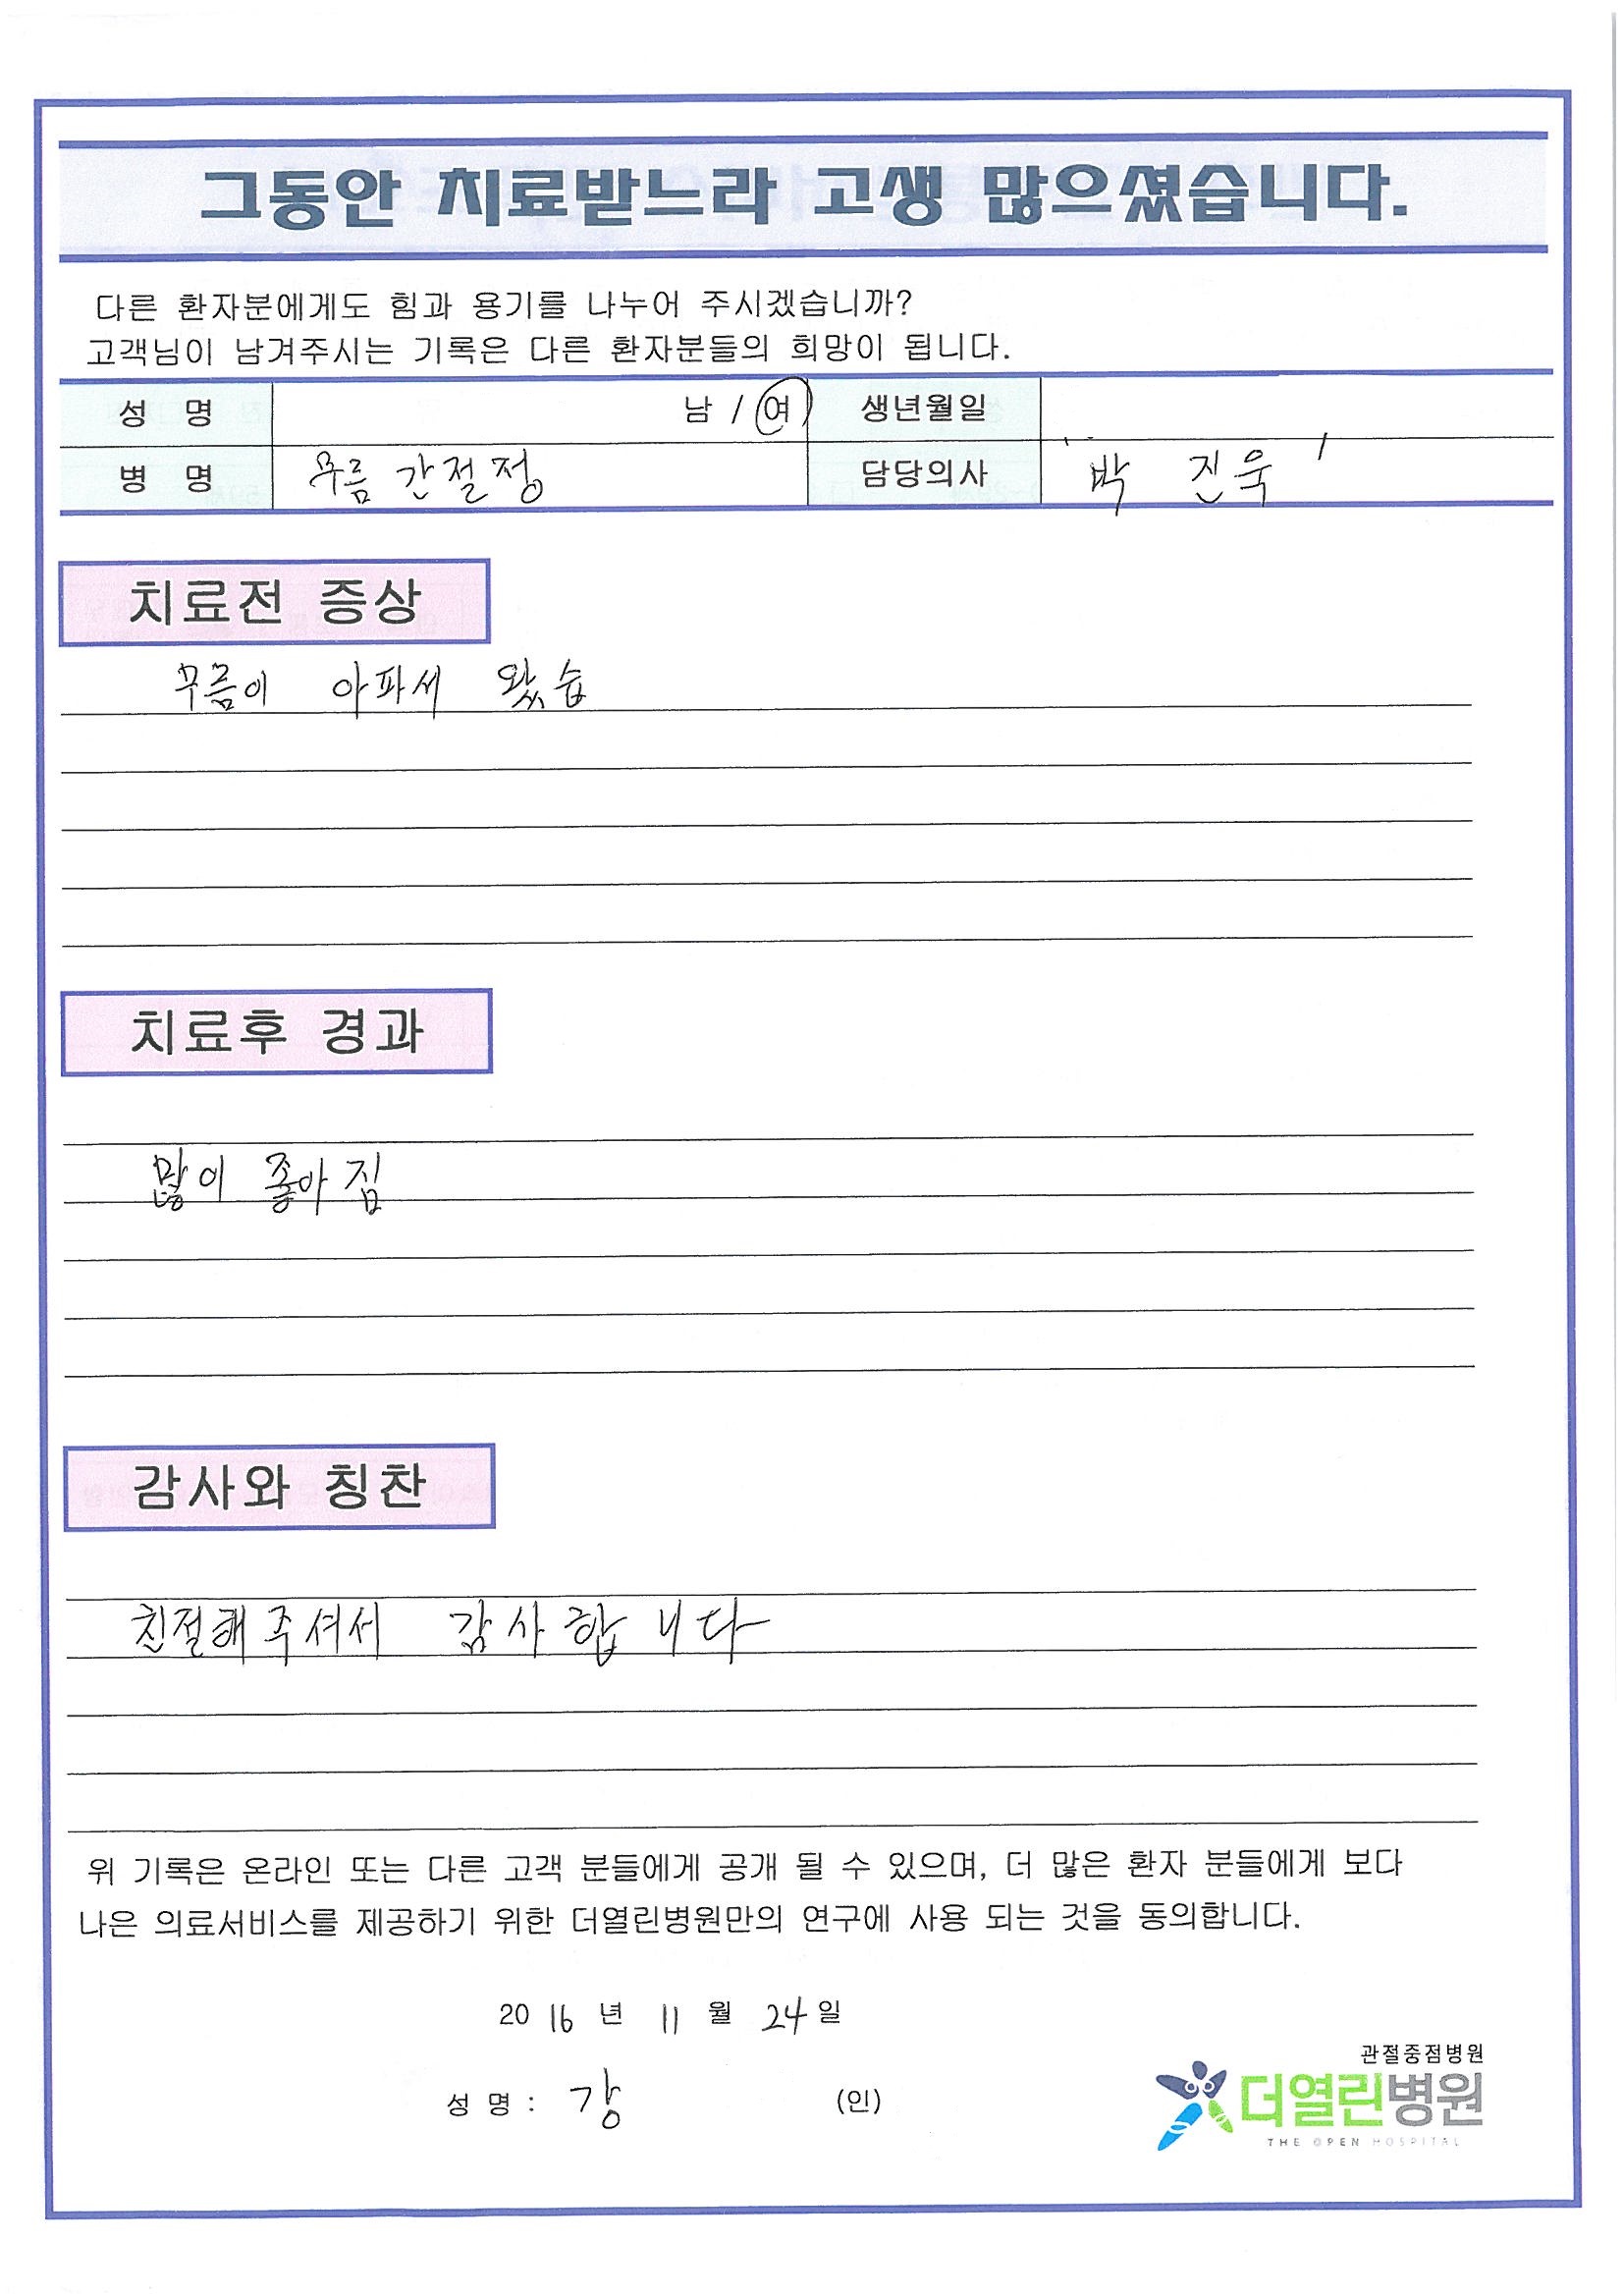 그동안 치료받느라 고생 많으셨습니다.
다른 환자분에게도 힘과 용기를 나누어 주시겠습니까?
고객님이 남겨주시는 기록은 다른 환자분들의 희망이 됩니다.
성 명 남 / 여 생년월일
병 명 무릎 간절정 담당의사 박 진욱
치료전 증상
무릎이 아파서 왔습
치료후 경과
많이 좋아짐
감사와 칭찬
친절해주셔서 감사합니다
위 기록은 온라인 또는 다른 고객 분들에게 공개 될 수 있으며, 더 많은 환자 분들에게 보다
나은 의료서비스를 제공하기 위한 더열린병원만의 연구에 사용 되는 것을 동의합니다.
20 16 년 11 월 24 일
성 명 : 강 (인)
관절중점병원
더열린병원
THE OPEN HOSPITAL